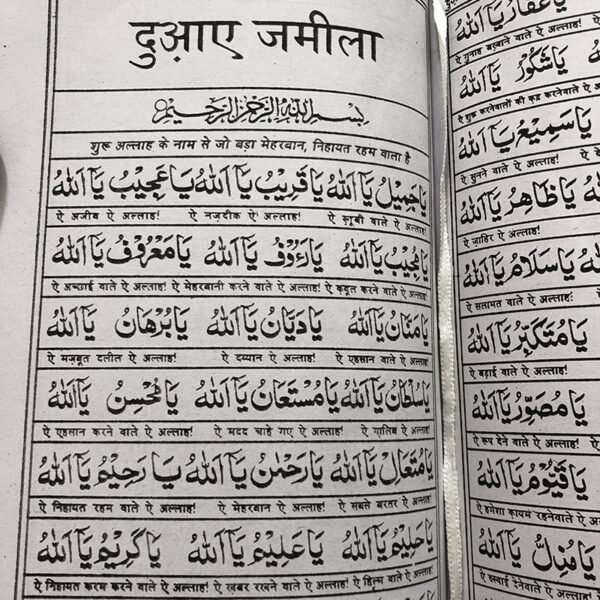 दुआ़ए जमीला
بِسْمِ اللهِ الرَّحْمٰنِ الرَّحِيْمِ
शुरू अल्लाह के नाम से जो बड़ा मेहरबान, निहायत रहम वाला है
يَا جَمِيْلُ يَا اَللهُ يَا قَرِيْبُ يَا اَللهُ يَا عَجِيْبُ يَا اَللهُ
ऐ अजीब ऐ अल्लाह! ऐ नज़दीक ऐ अल्लाह! ऐ ख़ूबी वाले ऐ अल्लाह!
يَا مُجِيْبُ يَا اَللهُ يَا رَءُوْفُ يَا اَللهُ يَا مَعْرُوْفُ يَا اَللهُ
ऐ अच्छाई वाले ऐ अल्लाह! ऐ मेहरबानी करने वाले ऐ अल्लाह! ऐ क़ुबूल करने वाले ऐ अल्लाह!
يَا مَنَّانُ يَا اَللهُ يَا دَيَّانُ يَا اَللهُ يَا بُرْهَانُ يَا اَللهُ
ऐ मज़बूत दलील ऐ अल्लाह! ऐ दय्यान ऐ अल्लाह! ऐ एहसान वाले ऐ अल्लाह!
يَا سُلْطَانُ يَا اَللهُ يَا مُسْتَعَانُ يَا اَللهُ يَا مُحْسِنُ يَا اَللهُ
ऐ एहसान करने वाले ऐ अल्लाह! ऐ मदद चाहे गए ऐ अल्लाह! ऐ ग़ालिब ऐ अल्लाह!
يَا مُتَعَالُ يَا اَللهُ يَا رَحْمٰنُ يَا اَللهُ يَا رَحِيْمُ يَا اَللهُ
ऐ निहायत रहम वाले ऐ अल्लाह! ऐ मेहरबान ऐ अल्लाह! ऐ सबसे बरतर ऐ अल्लाह!
يَا حَلِيْمُ يَا اَللهُ يَا عَلِيْمُ يَا اَللهُ يَا كَرِيْمُ يَا اَللهُ
ऐ निहायत करम करने वाले ऐ अल्लाह! ऐ ख़बर रखने वाले ऐ अल्लाह! ऐ हिल्म वाले ऐ अल्लाह!
يَا غَفَّارُ يَا اَللهُ
ऐ गुनाह बख़्शने वाले ऐ अल्लाह!
يَا شَكُوْرُ يَا اَللهُ
ऐ शुक्र करनेवालों की क़द्र करनेवाले ऐ अल्लाह!
يَا سَمِيْعُ يَا اَللهُ
ऐ सुनने वाले ऐ अल्लाह!
يَا ظَاهِرُ يَا اَللهُ
ऐ ज़ाहिर ऐ अल्लाह!
يَا سَلَامُ يَا اَللهُ
ऐ सलामत वाले ऐ अल्लाह!
يَا مُتَكَبِّرُ يَا اَللهُ
ऐ बड़ाई वाले ऐ अल्लाह!
يَا مُصَوِّرُ يَا اَللهُ
ऐ रूप देने वाले ऐ अल्लाह!
يَا قَيُّوْمُ يَا اَللهُ
ऐ हमेशा क़ायम रहनेवाले ऐ अल्लाह!
يَا مُذِلُّ يَا اَللهُ
ऐ रुस्वाई देनेवाले ऐ अल्लाह!